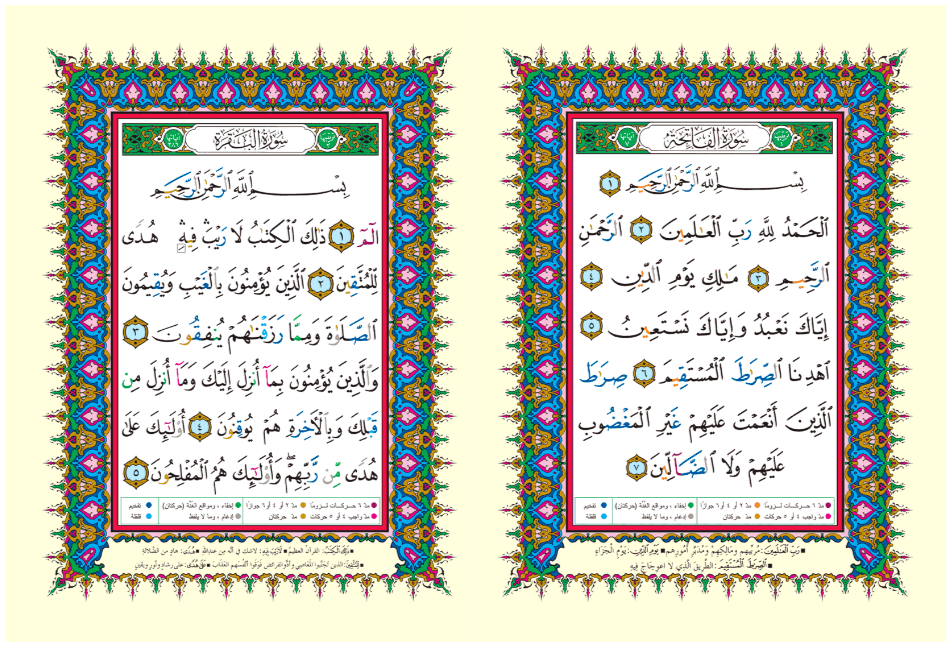 سُورَةُ الفَاتِحَةِ
بِسْمِ ٱللَّهِ ٱلرَّحْمَٰنِ ٱلرَّحِيمِ ١
ٱلْحَمْدُ لِلَّهِ رَبِّ ٱلْعَٰلَمِينَ ٢ ٱلرَّحْمَٰنِ
ٱلرَّحِيمِ ٣ مَٰلِكِ يَوْمِ ٱلدِّينِ ٤
إِيَّاكَ نَعْبُدُ وَإِيَّاكَ نَسْتَعِينُ ٥
ٱهْدِنَا ٱلصِّرَٰطَ ٱلْمُسْتَقِيمَ ٦ صِرَٰطَ
ٱلَّذِينَ أَنْعَمْتَ عَلَيْهِمْ غَيْرِ ٱلْمَغْضُوبِ
عَلَيْهِمْ وَلَا ٱلضَّآلِّينَ ٧
● مدّ ٦ حركات لزوماً ● مدّ ٢ أو ٤ أو ٦ جوازاً ● إخفاء، ومواقع الغُنَّة (حركتان) ● تفخيم
● مدّ واجب ٤ أو ٥ حركات ● مدّ حركتان ● إدغام، وما لا يُلفظ ● قلقلة
■ رَبِّ الْعَالَمِينَ: مُرَبِّيهِم وَمَالِكِهِمْ وَمُدَبِّرِ أُمُورِهِم ■ يَوْمِ الدِّينِ: يَوْمِ الْجَزَاءِ
■ الصِّرَاطَ الْمُسْتَقِيمَ: الطَّرِيقَ الَّذِي لا اعْوِجَاجَ فِيهِ
سُورَةُ البَقَرَةِ
بِسْمِ ٱللَّهِ ٱلرَّحْمَٰنِ ٱلرَّحِيمِ
الٓمٓ ١ ذَٰلِكَ ٱلْكِتَٰبُ لَا رَيْبَ ۛ فِيهِ ۛ هُدًى
لِّلْمُتَّقِينَ ٢ ٱلَّذِينَ يُؤْمِنُونَ بِٱلْغَيْبِ وَيُقِيمُونَ
ٱلصَّلَوٰةَ وَمِمَّا رَزَقْنَٰهُمْ يُنفِقُونَ ٣
وَٱلَّذِينَ يُؤْمِنُونَ بِمَآ أُنزِلَ إِلَيْكَ وَمَآ أُنزِلَ مِن
قَبْلِكَ وَبِٱلْأَخِرَةِ هُمْ يُوقِنُونَ ٤ أُو۟لَٰٓئِكَ عَلَىٰ
هُدًى مِّن رَّبِّهِمْ ۖ وَأُو۟لَٰٓئِكَ هُمُ ٱلْمُفْلِحُونَ ٥
● مدّ ٦ حركات لزوماً ● مدّ ٢ أو ٤ أو ٦ جوازاً ● إخفاء، ومواقع الغُنَّة (حركتان) ● تفخيم
● مدّ واجب ٤ أو ٥ حركات ● مدّ حركتان ● إدغام، وما لا يُلفظ ● قلقلة
■ ذَلِكَ الْكِتَابُ: القرآن العظيمُ ■ لا رَيْبَ فِيهِ: لا شك في أنّه مِن عندِ الله ■ هُدًى: هادٍ من الضلالةِ
■ لِلْمُتَّقِينَ: الذين تجنّبوا المعاصي وأدَّوا الفرائضَ فوقَوا أنفسَهم العذابَ ■ عَلَى هُدًى: على رشادٍ ونورٍ ويقينٍ